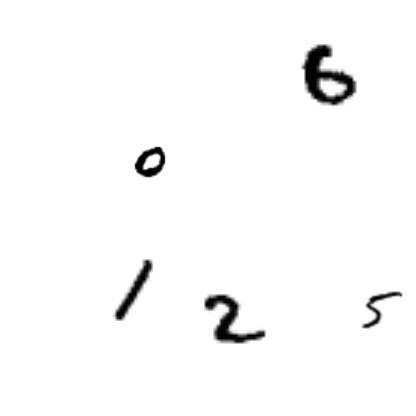 6
0
1 2 5